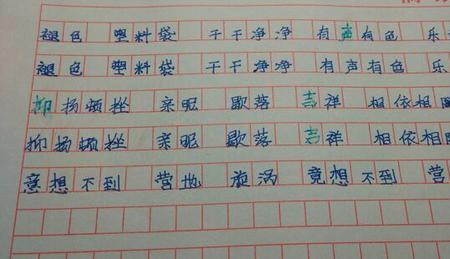 褪色 塑料袋 干干净净 有声有色 乐
褪色 塑料袋 干干净净 有声有色 乐
抑扬顿挫 亲昵 歇落 吉祥 相依相
抑扬顿挫 亲昵 歇落 吉祥 相依相
意想不到 营地 旋涡 意想不到 营